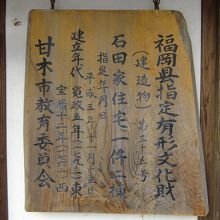 福岡県指定有形文化財
(建造物)第二十五号
石田家住宅一件二棟
指定年月日
平成三年十一月十五日
建立年代 寛政五年(一七九三)東
宝暦十一年(一七六一)西
甘木市教育委員会